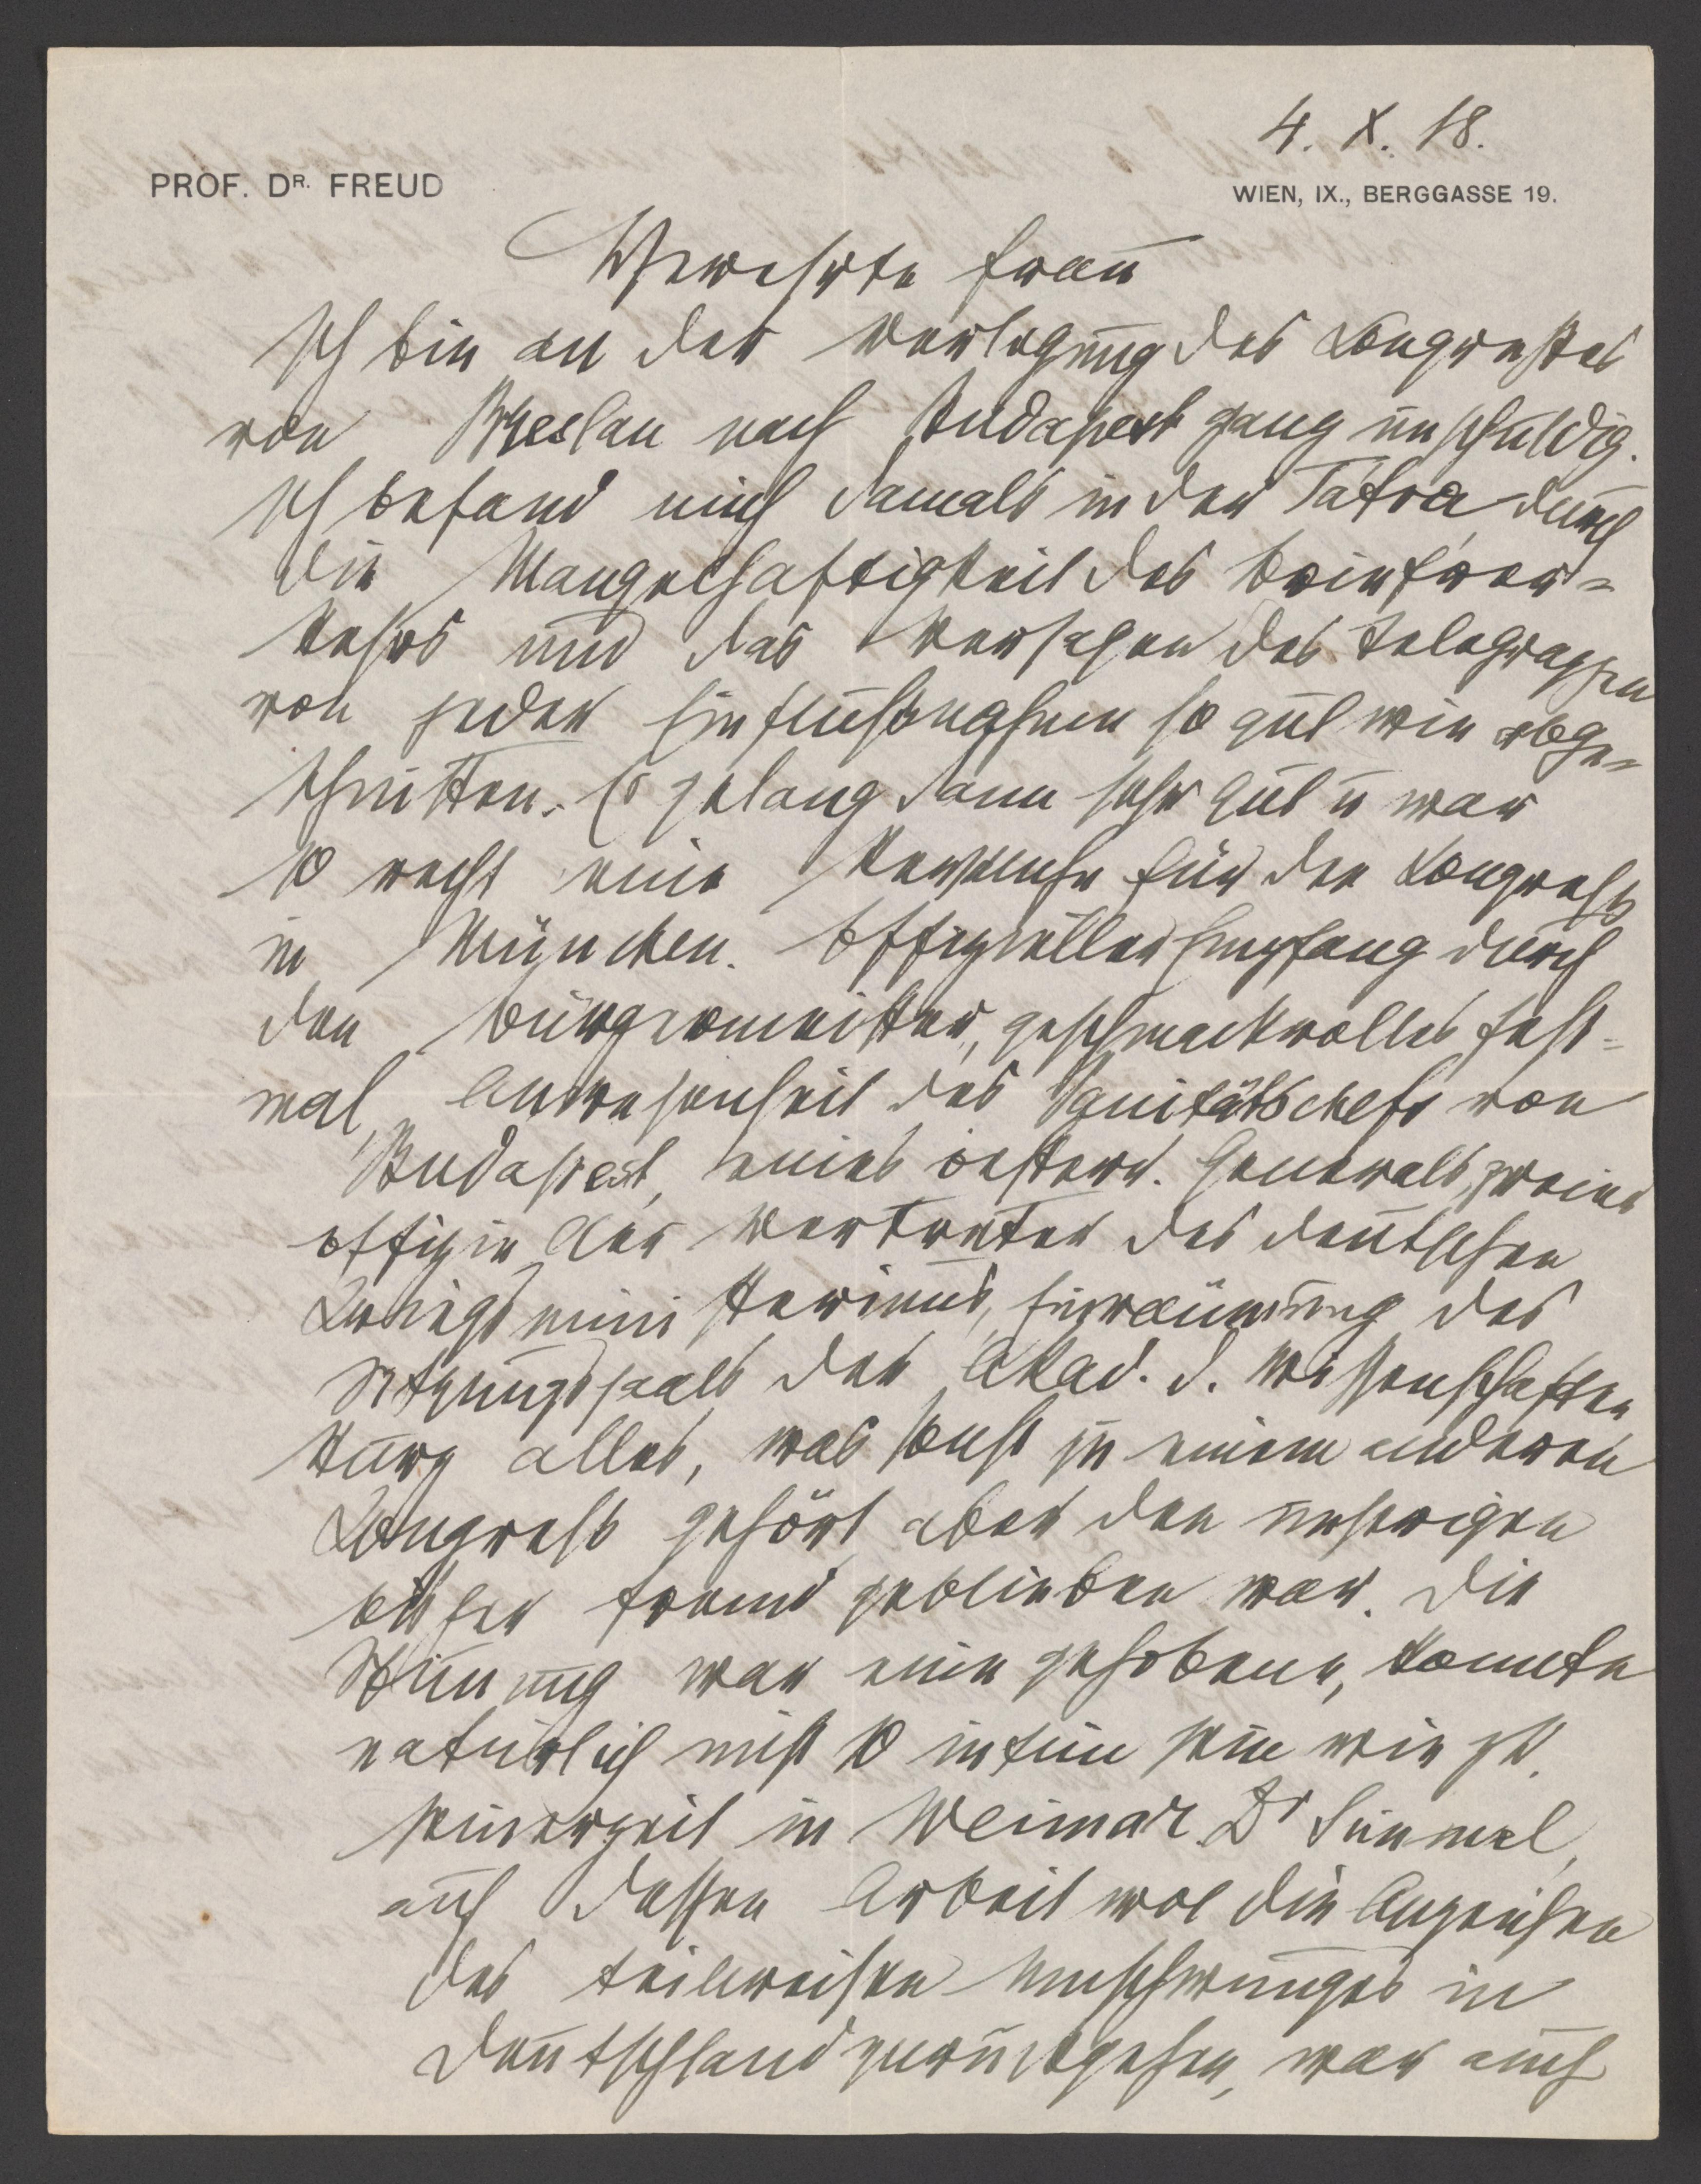 4. X. 18.
PROF. DR. FREUD
WIEN, IX., BERGGASSE 19.
Verehrte Frau
Ich bin an der Verlegung des Kongresses
von Breslau nach Budapest ganz unschuldig.
Ich befand mich damals in der Tatra durch
die Mangelhaftigkeit des Briefver-
kehrs und das Versagen des Telegraphen
von jeder Einflußnahme so gut wie abge-
schnitten. Es gelang dann sehr gut u war
so recht eine Revanche für den Kongreß
in München. Offizieller Empfang durch
den Bürgermeister, geschmackvolles Fest-
mal, Anwesenheit des Sanitätschefs von
Budapest, eines österr. Generals, zweier
offizieller Vertreter des deutschen
Kriegsministeriums, Einräumung des
Sitzungssaals der Akad. d. Wissenschaften
kurz alles, was sonst zu einem anderen
Kongreß gehört aber den unserigen
bisher fremd geblieben war. Die
Stimmung war eine gehobene, konnte
natürlich nicht so intim sein wie
seinerzeit in Weimar. Dr Simmel,
auf dessen Arbeit wol die Anzeichen
des teilweisen Umschwunges in
Deutschland zurückgehen, war auch